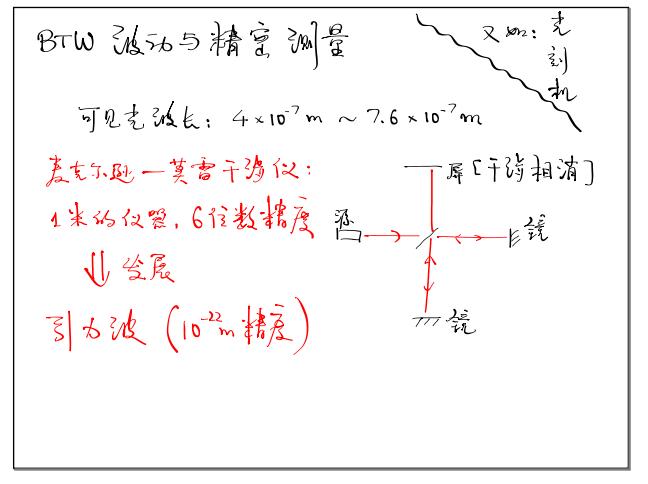 BTW 波动与精密测量
又如：光刻机
可见光波长：4×10⁻⁷m ~ 7.6×10⁻⁷m
麦克尔逊—莫雷干涉仪：
1米的仪器，6位数精度
⇓ 发展
引力波（10⁻²²m精度）
屏[干涉相消]
源
镜
镜